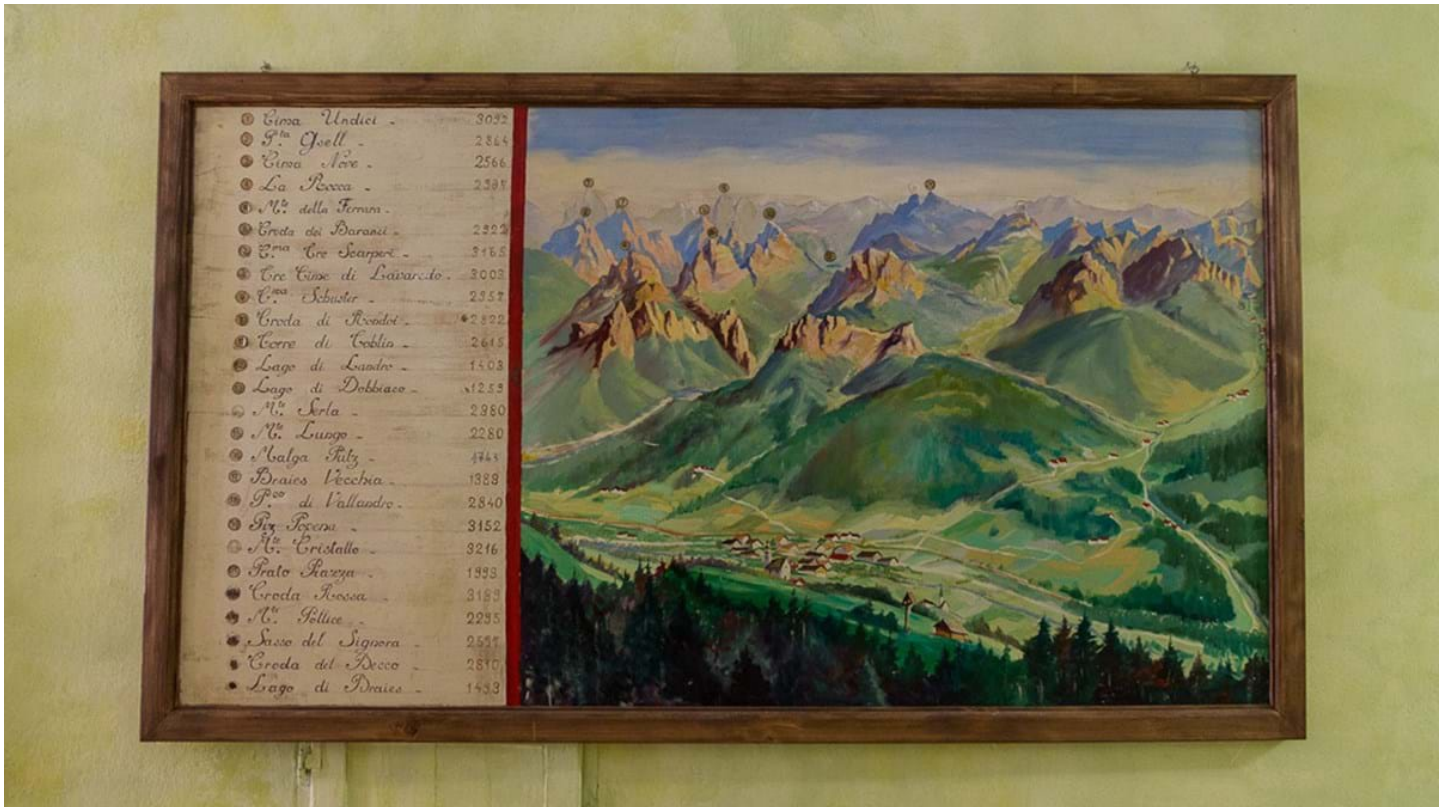 ① Cima Undici - 3092
② P.ta Gsell - 2864
③ Cima Nove - 2566
④ La Rocca -
M.te della Ferrara -
Croda dei Baranci - 2922
C.ma Tre Scarperi - 3165
Tre Cime di Lavaredo - 3003
C.ma Schuster - 2957
Croda di Rondoi - 2822
Torre di Toblin - 2615
Lago di Landro - 1403
Lago di Dobbiaco - 1253
M.te Serla - 2380
M.te Lungo - 2280
Malga Putz - 1743
Braies Vecchia - 1388
P.co di Vallandro - 2840
Piz Popena - 3152
M.te Cristallo - 3216
Prato Piazza - 1993
Croda Rossa - 3139
M.te Pollice - 2295
Sasso del Signora -
Croda del Becco - 2810
Lago di Braies - 1493